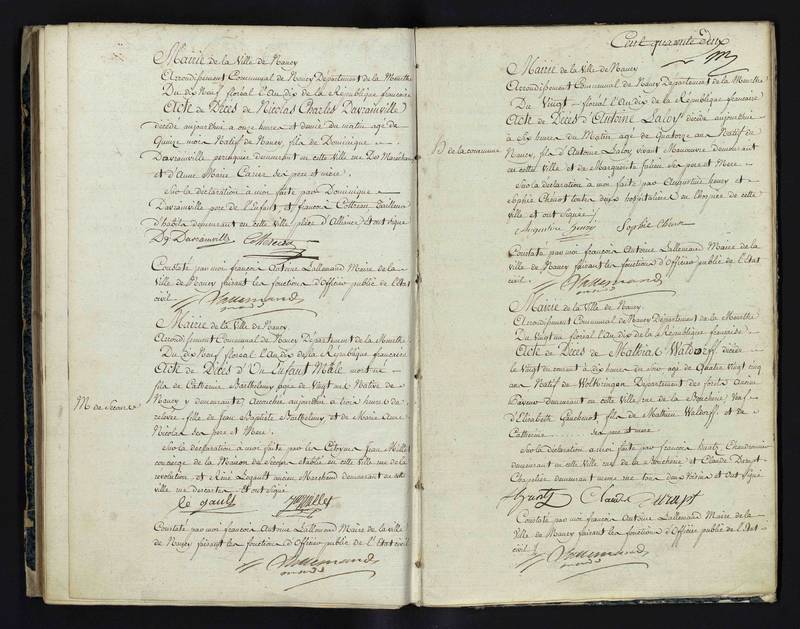 Mairie de la Ville de Nancy
Arrondissement Communal de Nancy Département de la Meurthe
Du dix Neuf floréal l'An dix de la République française
Acte de Décès de Nicolas Charles Davrainville
décédé aujourd'hui a onze heures et demie du matin agé de
Quinze mois Natif de Nancy, fils de Dominique
Davrainville perruquier demeurant en cette ville rue Des Maréchaux
et d'Anne Marie ses père et mère.
Sur la déclaration à moi faite par Dominique
Davrainville père de l'Enfant, et françois tailleur
d'habits demeurant en cette ville place d'Alliance et ont signé
Dq Davrainville
Constaté par moi françois Antoine Lallemand Maire de la
Ville de Nancy faisant les fonctions d'Officier public de l'Etat
civil. Lallemand
Mairie de la Ville de Nancy
Arrondissement Communal de Nancy Département de la Meurthe
Du dix Neuf floréal l'An dix de la République française
Acte de Décès d'Un Enfant Mâle mort né
fils de Catherine Barthelemy agée de Vingt ans Native de
M de Secours
Nancy y demeurante, accouchée aujourd'hui a trois heures de
relevée, fille de Jean Baptiste Barthelemy, et de Marie Anne
Nicolas ses père et Mère.
Sur la déclaration a moi faite par les Citoyens Jean Millet
concierge de la Maison de Secours établie en cette ville rue de la
révolution, et Rémi Legault ancien Marchand demeurant en cette
ville rue descartes, et ont signé
le gault Millet
Constaté par moi françois Antoine Lallemand Maire de la ville
de Nancy faisant les fonctions d'Officier public de l'Etat civil
Lallemand
Cent quarante deux
Mairie de la Ville de Nancy
Arrondissement Communal de Nancy Département de la Meurthe
Du Vingt floréal l'An dix de la République française
Acte de Décès d'Antoine Laloy décédé aujourd'hui
à six heures du Matin agé de Quatorze ans Natif de
de la commune
Nancy, fils d'Antoine Laloy vivant Manœuvre demeurant
en cette Ville et de Marguerite Julien ses père et Mère
Sur la déclaration a moi faite par Augustine henry et
Sophie Chenut toutes deux hospitalières en l'hospice de cette
ville et ont signées
Augustine henry Sophie Chenut
Constaté par moi françois Antoine Lallemand Maire de la
Ville de Nancy faisant les fonctions d'Officier public de l'Etat
civil Lallemand
Mairie de la Ville de Nancy
Arrondissement Communal de Nancy Département de la Meurthe
Du Vingt un floréal l'An dix de la République française
Acte de Décès de Mathias Waldorff décédé
le Vingt du courant à dix heures du soir agé de Quatre vingt cinq
ans Natif de Département des forêts ancien
Paveur demeurant en cette Ville, rue de la Boucherie Veuf
d'Elisabeth fils de Mathieu Waldorff et de
Catherine ses père et mère
Sur la déclaration, a moi faite par françois Chaudronnier
demeurant en cette Ville rue de la Boucherie et Claude
Chapelier demeurant même rue tous deux Voisins et ont signé
Claude
Constaté par moi françois Antoine Lallemand Maire de la
Ville de Nancy faisant les fonctions d'Officier public de l'Etat
civil Lallemand